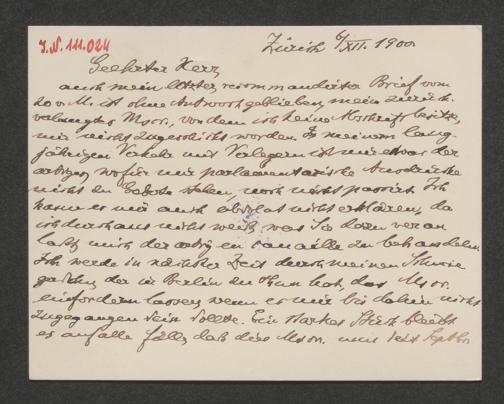 J.N. 111.024
Zürich 6/XII. 1900
Geehrter Herr,
auch mein letzter, recommandirter Brief vom
20 v. M. ist ohne Antwort geblieben, mein zurück-
verlangtes Mscr., von dem ich keine Abschrift besitze,
mir nicht zugeschickt worden. In meinem lang-
jährigen Verkehr mit Verlegern ist mir etwas der-
artiges, wofür mir parlamentarische Ausdrücke
nicht zu Gebote stehen, noch nicht passirt. Ich
kann es mir auch absolut nicht erklären, da
ich durchaus nicht weiß, was Sie dazu veran
laßt, mich derartig en canaille zu behandeln.
Ich werde in nächster Zeit durch meinen Schwie
gersohn, der in Berlin zu thun hat, das Mscr.
einfordern lassen, wenn es mir bis dahin nicht
zugegangen sein sollte. Ein starkes Stück bleibt
es auf alle Fälle, daß dies Mscr. nun seit Septbr.